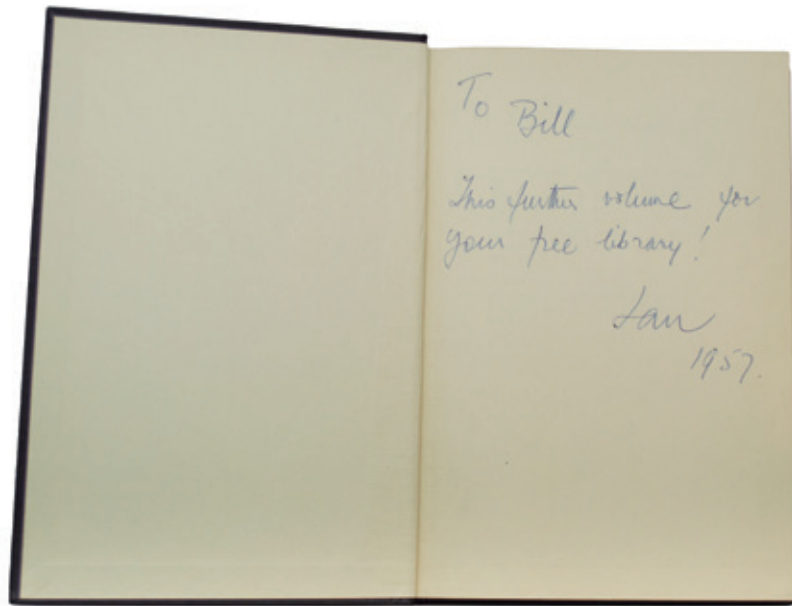 To Bill
This further volume for
your free library!
Ian
1957.